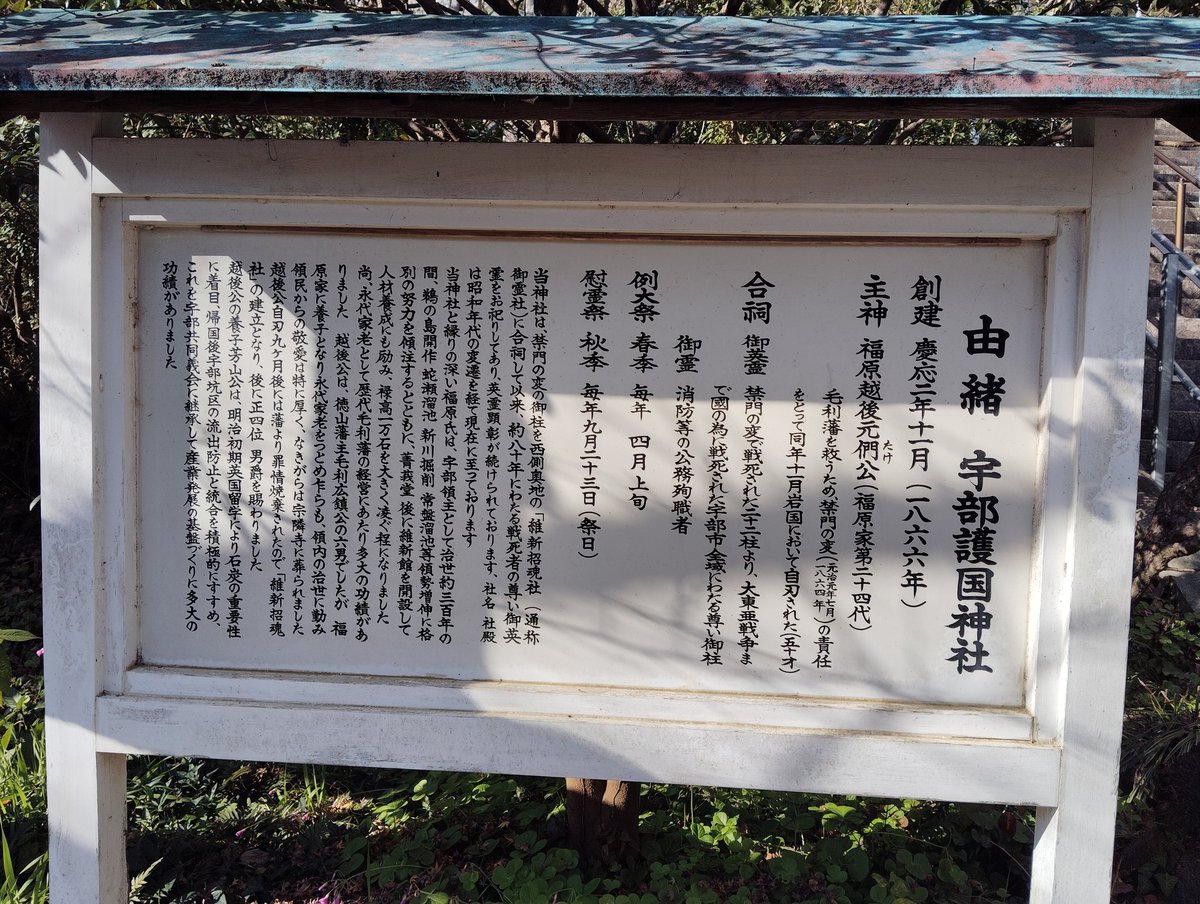 由緒　宇部護国神社
創建　慶応二年十一月（一八六六年）
主神　福原越後元僴公（福原家第二十四代）
たけ
毛利藩を救うため、禁門の変（元治元年七月一八六四年）の責任
をとって同年十一月岩国において自刃された（五十才）
合祠　御蓋　禁門の変で戦死された二十二柱より、大東亜戦争ま
で國の為に戦死された宇部市全域にわたる尊い御柱
御霊　消防等の公務殉職者
例大祭　春季　毎年　四月上旬
慰霊祭　秋季　毎年九月二十三日（祭日）
当神社は、禁門の変の御柱を西側奥地の「維新招魂社（通称
御霊社）に合祠して以来、約八十年にわたる戦死者の尊い御英
霊をお祀りしてあり、英霊顕彰が続けられております、社名　社殿
は昭和年代の変遷を経て現在に至っております
当神社と縁りの深い福原氏は、宇部領主として治世約三百年の
間　鵜の島開作　蛇瀬溜池　新川堀削　常盤溜池等領勢増伸に格
別の努力を傾注するとともに、菁莪堂　後に維新館を開設して
人材養成にも励み　禄高一万石を大きく凌ぐ程になりました
尚、永代家老として歴代毛利藩の経営にあたり多大の功績があ
りました　越後公は、徳山藩主毛利広鎮公の六男でしたが　福
原家に養子となり永代家老をつとめ乍らも、領内の治世に勤み
領民からの敬愛は特に厚く、なきがらは宗隣寺に葬られました
越後公自刃九ヶ月後には藩より罪情焼棄されたので「維新招魂
社」の建立となり、後に正四位　男爵を賜わりました
越後公の養子芳山公は、明治初期英国留学により石炭の重要性
に着目、帰国後宇部坑区の流出防止と統合を積極的にすすめ、
これを宇部共同義会に継承して産業発展の基盤づくりに多大の
功績がありました